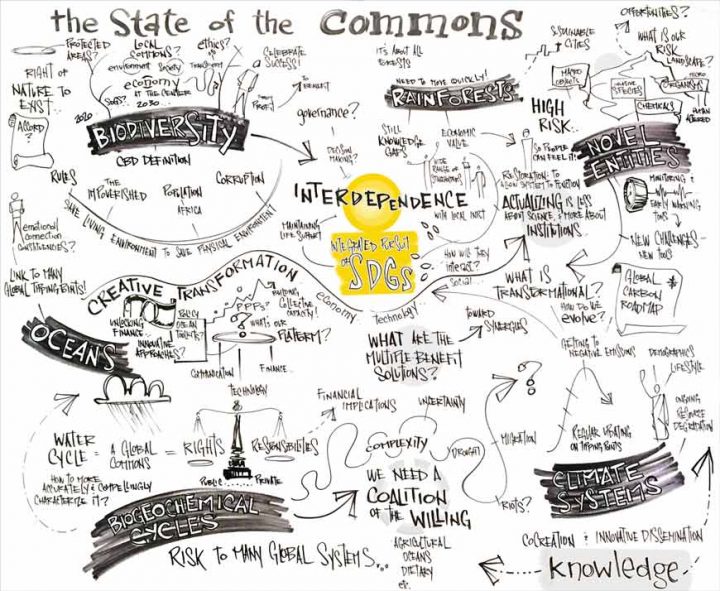 the State of the Commons
PROTECTED
AREAS?
LOCAL
COMMONS?
ethics?
CELEBRATE
SUCCESS!
RIGHT OF
NATURE TO
EXIST...
environment
Society
economy
AT THE CENTER
2030...
2020
ACCORD
?
BIODIVERSITY
CBD DEFINITION
RULES
THE
IMPOVERISHED
POPULATION
AFRICA
CORRUPTION
SAVE LIVING ENVIRONMENT TO SAVE PHYSICAL ENVIRONMENT
emotional
connection
CONSTITUENCIES?
LINK TO MANY
GLOBAL TIPPING POINTS!
TO
BENEFIT
PROFIT!
governance?
DECISION
MAKING?
IT'S ABOUT ALL
FORESTS
NEED TO MOVE QUICKLY!
RAINFORESTS
STILL
KNOWLEDGE
GAPS
ECONOMIC
VALUE
WIDE
RANGE OF
WITH LOCAL INPUT
INTERDEPENDENCE
INTEGRATED PURSUIT
OF
SDGs
MAINTAINING
LIFE SUPPORT
HOW WILL THEY
interact?
Social
economy
Technology
SUSTAINABLE
CITIES
OPPORTUNITIES?
WHAT IS OUR
RISK
LANDSCAPE?
HIGH
RISK..
SO PEOPLE
CAN FEEL IT!
SPECIES
MICRO
ORGANISMS
CHEMICALS
HUMAN
ALTERED
NOVEL
ENTITIES
MONITORING &
EARLY WARNING
NEW CHALLENGES ~
NEW TOOLS
RESTORATION: TO
ALLOW SYSTEM TO FUNCTION
ACTUALIZING IS LESS
ABOUT SCIENCE, & MORE ABOUT
INSTITUTIONS
WHAT IS
TRANSFORMATIONAL?
HOW DO WE
EVOLVE?
GLOBAL
CARBON
ROADMAP
CREATIVE TRANSFORMATION
UNLOCKING
FINANCE...
INNOVATIVE
APPROACHES?
POLICY
OCEAN
PPPs?
BUILDING
COLLECTIVE
CAPACITY!
WHAT'S
OUR
PLATFORM?
COMMUNICATION
FINANCE...
TECHNOLOGY
OCEANS
WHAT ARE THE
MULTIPLE BENEFIT
SOLUTIONS?
TOWARD
SYNERGIES
GETTING TO
NEGATIVE EMISSIONS
DEMOGRAPHICS
LIFESTYLE
ONGOING
RESOURCE
DEGRADATION
REGULAR UPDATING
ON TIPPING POINTS
MIGRATION
RIOTS?
CLIMATE
SYSTEMS
WATER
CYCLE
=
A GLOBAL
COMMONS
=
RIGHTS
RESPONSIBILITIES
PUBLIC
PRIVATE
HOW TO MORE
ACCURATELY & COMPELLINGLY
CHARACTERIZE IT?
FINANCIAL
IMPLICATIONS
UNCERTAINTY
COMPLEXITY
DROUGHT
WE NEED A
COALITION
OF THE WILLING
AGRICULTURAL
OCEANS
DIETARY
etc.
BIOGEOCHEMICAL
CYCLES
RISK TO MANY GLOBAL SYSTEMS...
COCREATION & INNOVATIVE DISSEMINATION
knowledge